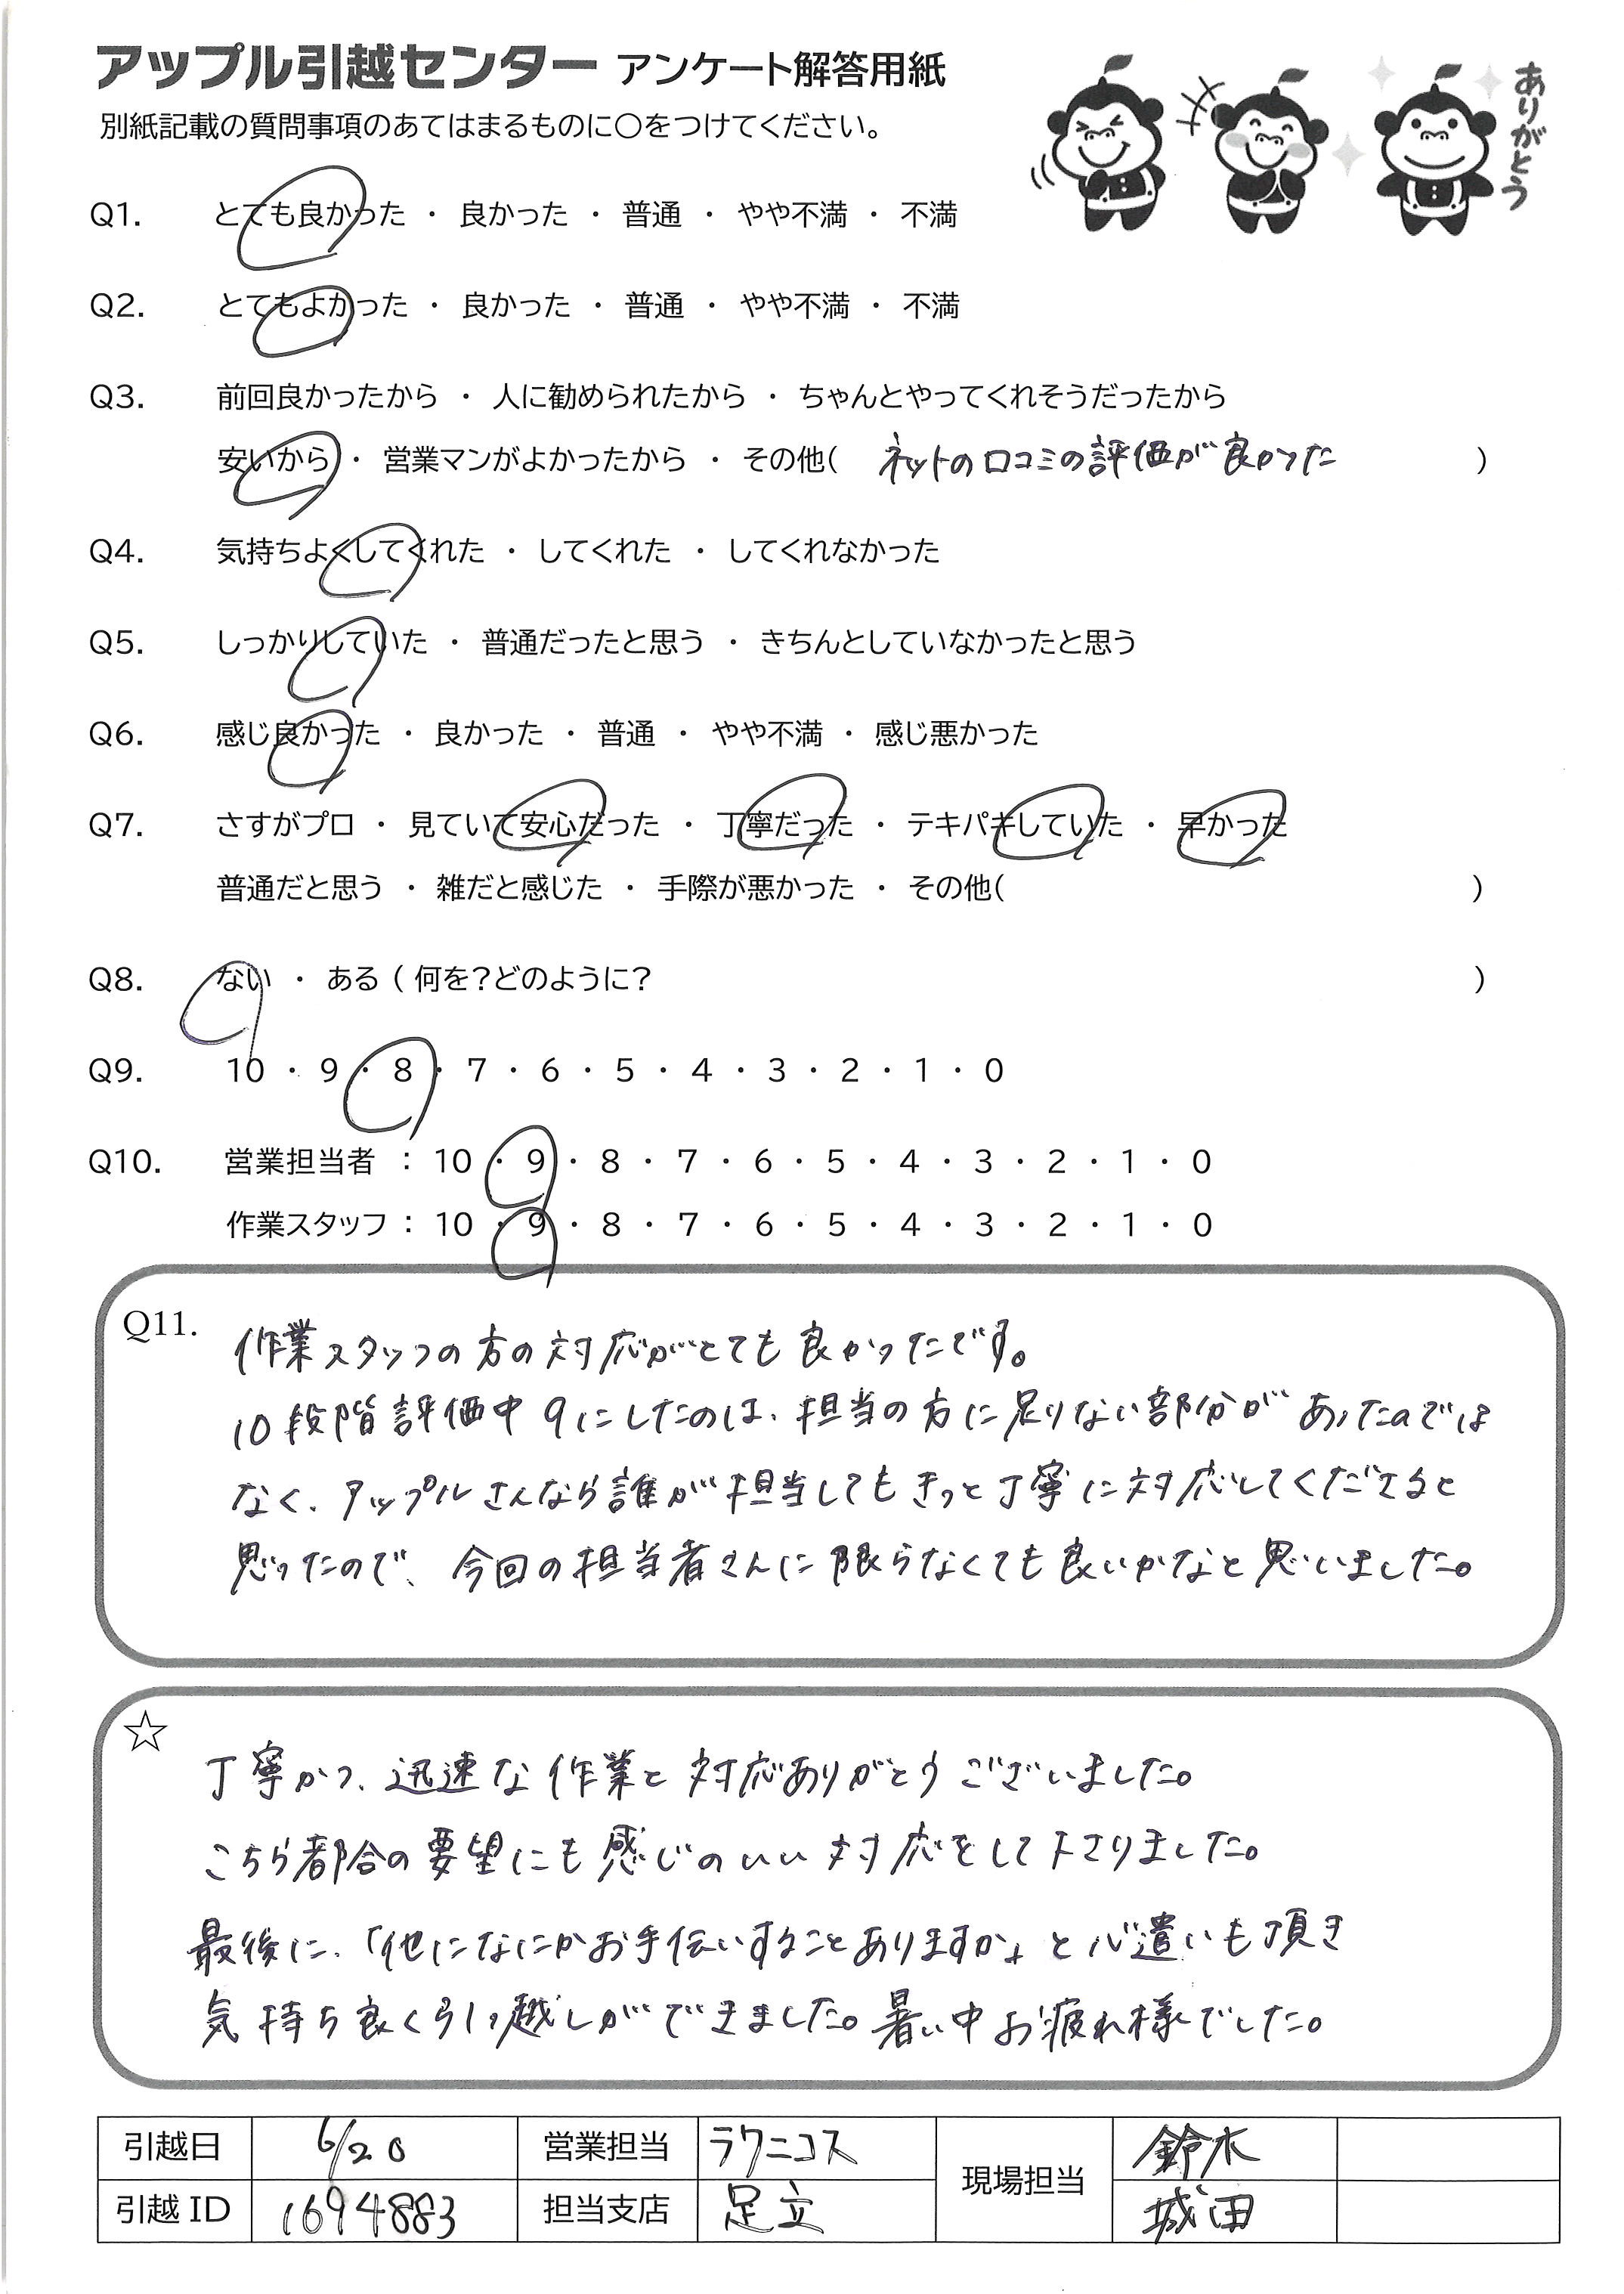 アップル引越センター アンケート解答用紙
別紙記載の質問事項のあてはまるものに〇をつけてください。
ありがとう
Q1. とても良かった ・ 良かった ・ 普通 ・ やや不満 ・ 不満
Q2. とてもよかった ・ 良かった ・ 普通 ・ やや不満 ・ 不満
Q3. 前回良かったから ・ 人に勧められたから ・ ちゃんとやってくれそうだったから
安いから ・ 営業マンがよかったから ・ その他( ネットの口コミの評価が良かった )
Q4. 気持ちよくしてくれた ・ してくれた ・ してくれなかった
Q5. しっかりしていた ・ 普通だったと思う ・ きちんとしていなかったと思う
Q6. 感じ良かった ・ 良かった ・ 普通 ・ やや不満 ・ 感じ悪かった
Q7. さすがプロ ・ 見ていて安心だった ・ 丁寧だった ・ テキパキしていた ・ 早かった
普通だと思う ・ 雑だと感じた ・ 手際が悪かった ・ その他( )
Q8. ない ・ ある ( 何を?どのように? )
Q9. 10 ・ 9 ・ 8 ・ 7 ・ 6 ・ 5 ・ 4 ・ 3 ・ 2 ・ 1 ・ 0
Q10. 営業担当者 : 10 ・ 9 ・ 8 ・ 7 ・ 6 ・ 5 ・ 4 ・ 3 ・ 2 ・ 1 ・ 0
作業スタッフ : 10 ・ 9 ・ 8 ・ 7 ・ 6 ・ 5 ・ 4 ・ 3 ・ 2 ・ 1 ・ 0
Q11. 作業スタッフの方の対応がとても良かったです。
10段階評価中9にしたのは、担当の方に足りない部分があったのでは
なく、アップルさんなら誰が担当してもきっと丁寧に対応してくださると
思ったので、今回の担当者さんに限らなくても良いかなと思いました。
☆
丁寧かつ、迅速な作業と対応ありがとうございました。
こちら都合の要望にも感じのいい対応をして下さりました。
最後に、「他になにかお手伝いすることありますか」と心遣いも頂き
気持ち良く引っ越しができました。暑い中お疲れ様でした。
引越日 6/20 営業担当 ラクニコス 現場担当 鈴木
引越ID 1694883 担当支店 足立 城田